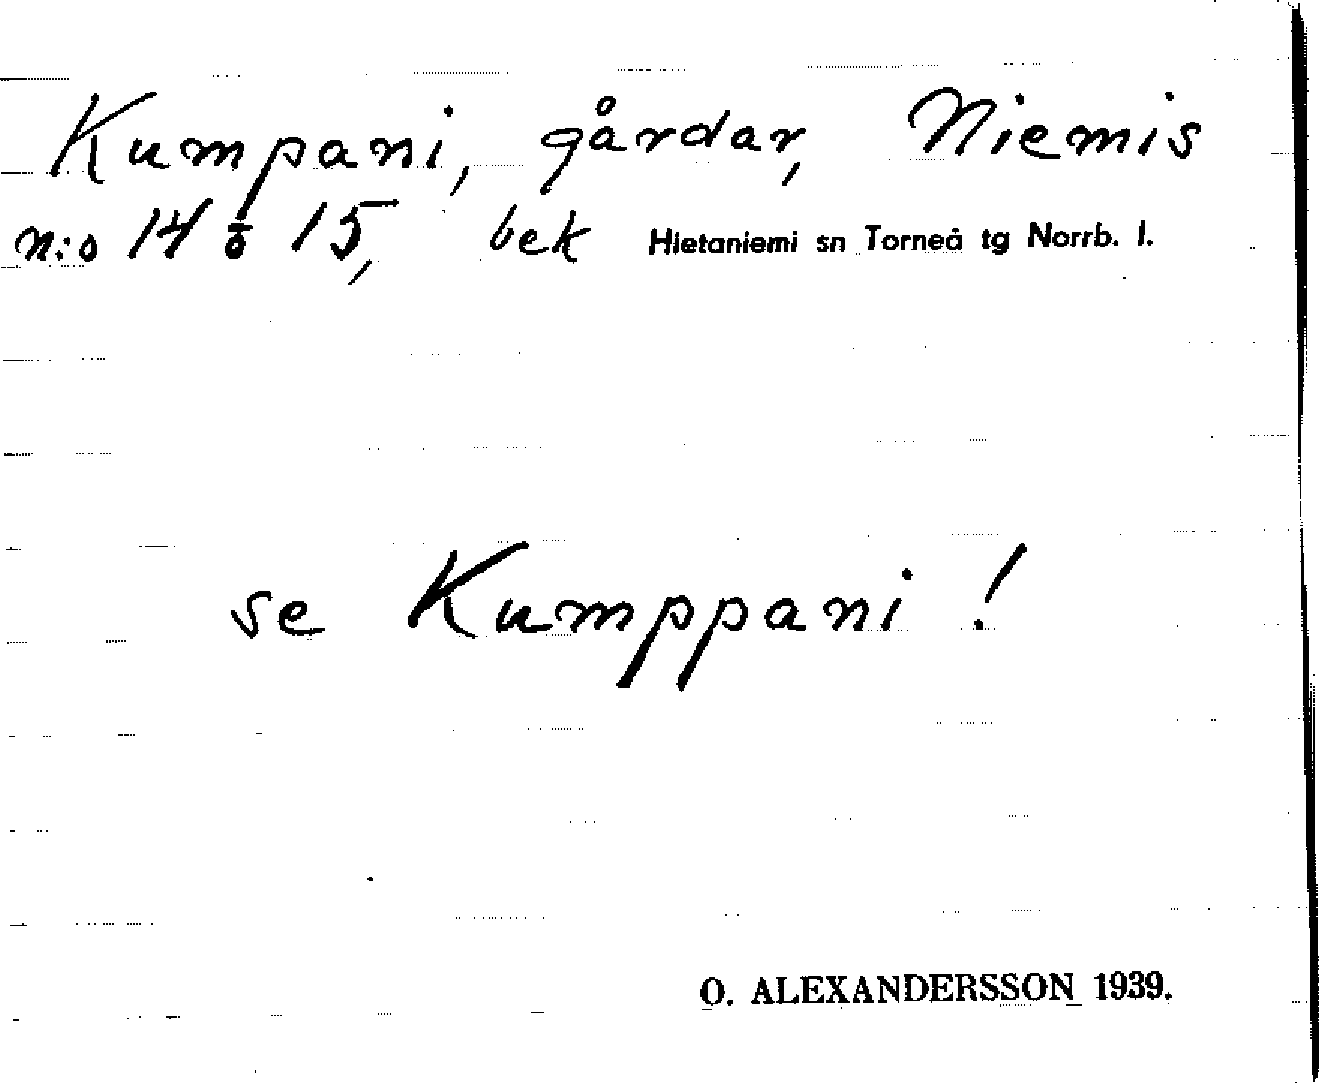 Kumpani, gårdar, Niemis
n:o 14 o 15, bek Hietaniemi sn Torneå tg Norrb. l.
se Kumppani!
O. ALEXANDERSSON 1939.